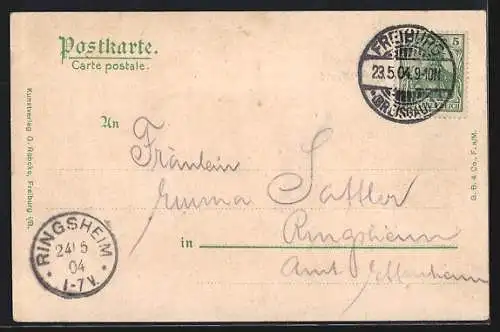 Postkarte.
Carte postale.
FREIBURG
23.5.04.9-10N
(BREISGAU)
5
An
Fräulein
Emma Sattler
in Ringsheim
Amt Ettenheim
RINGSHEIM
24 5
04
1-7V.
Kunstverlag G. Röbcke, Freiburg i/B.
G. B. & Co., F. a/M.